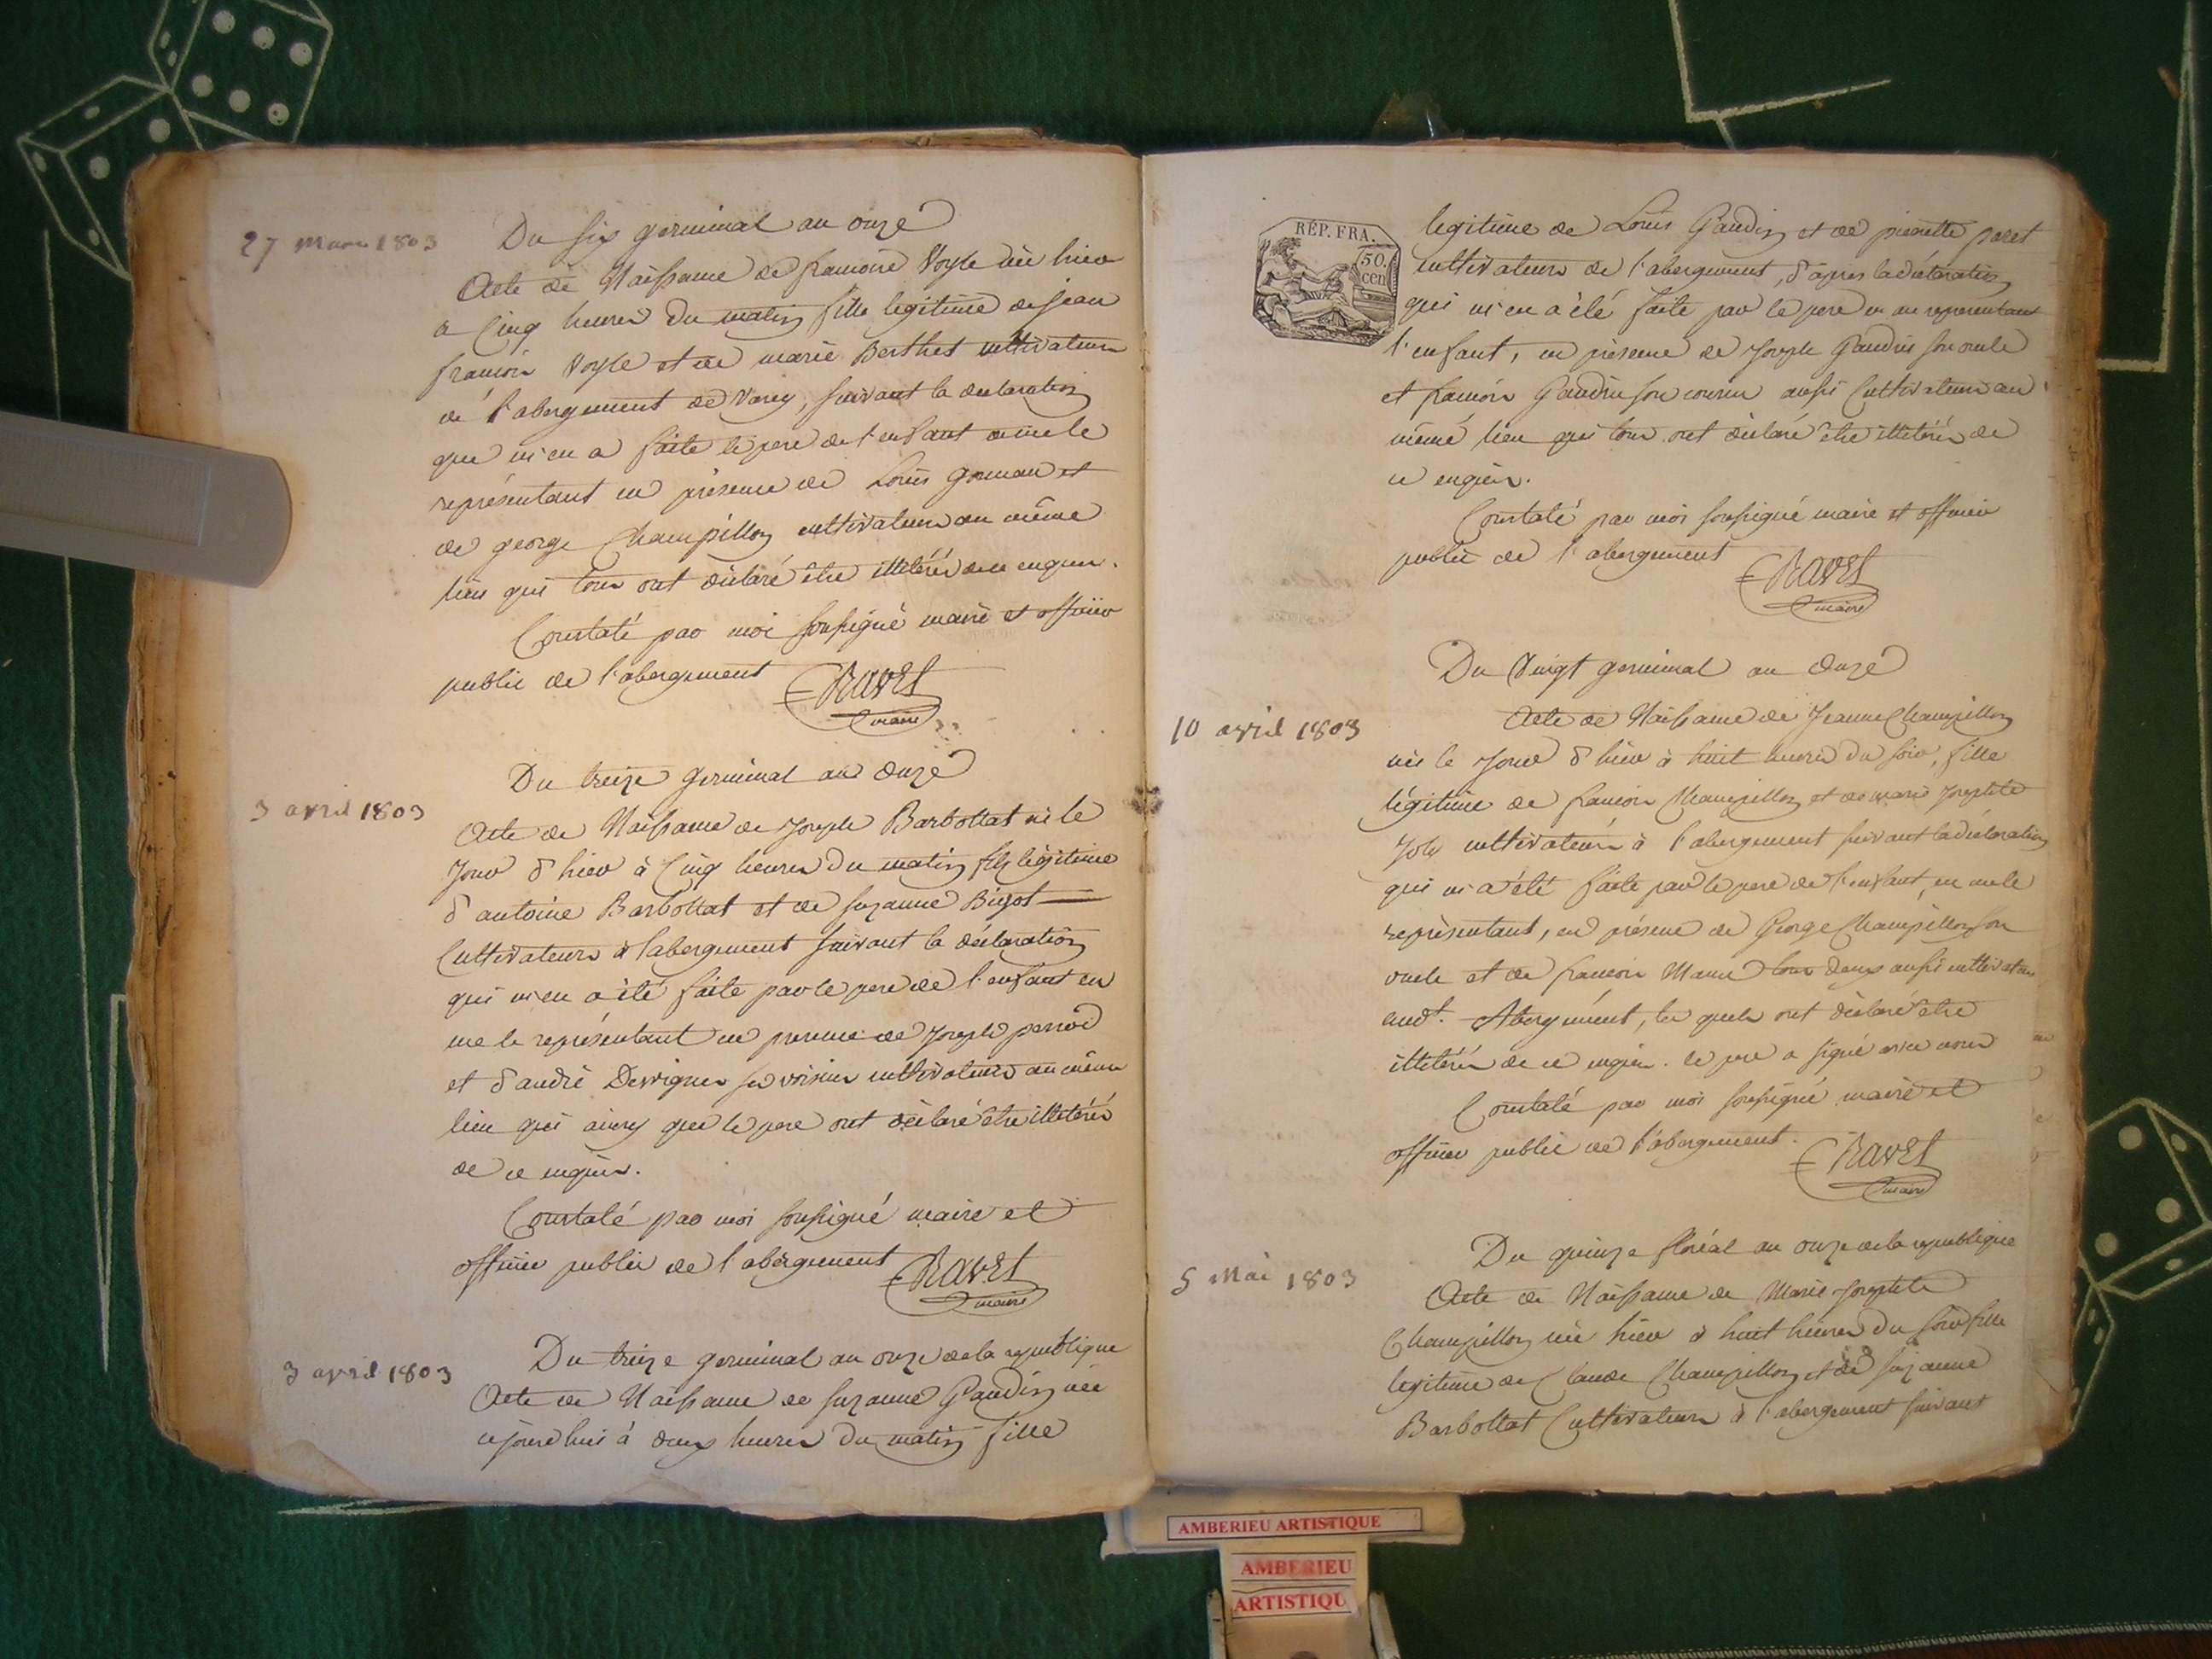 27 Mars 1803
Du six germinal an onze
Acte de Naissance de francoise Voyle née hier
a Cinq heures du matin fille legitime de jean
francois Voyle et de marie Berthet cultivateurs
de l'abergement de Varey, suivant la declaration
que m'en a faite le pere de l'enfant en me le
représentant en présence de Louis goeman et
de george Champillon cultivateurs au même
lieu qui tous ont déclaré être illitérés de ce enquis.
Constaté par moi soussigné maire et officier
public de l'abergement Ravet
maire
3 avril 1803
Du treize germinal an onze
Acte de Naissance de Joseph Barbollat né le
Jour d'hier à Cinq heures du matin fils légitime
d'antoine Barbollat et de suzanne Bigot
Cultivateurs à l'abergement suivant la déclaration
qui m'en a été faite par le pere de l'enfant en
me le représentant en presence de Joseph perrod
et d'andré Desvignes ses voisins cultivateurs au même
lieu qui ainsy que le pere ont déclaré être illitérés
de ce enquis.
Constaté par moi soussigné maire et
officier public de l'abergement Ravet
maire
3 avril 1803
Du treize germinal an onze de la republique
Acte de Naissance de suzanne Gaudin née
cejourdhui à deux heures du matin fille
RÉP. FRA.
50.
cen
legitime de Louis Gaudin et de pierrette paret
cultivateurs de l'abergement, d'après la déclaration
qui m'en a été faite par le pere en me representant
l'enfant, en présence de Joseph Gaudin son oncle
et francois Gaudin son cousin aussi Cultivateurs au
même lieu qui tous ont déclaré être illitérés de
ce enquis.
Constaté par moi soussigné maire et officier
public de l'abergement Ravet
maire
10 avril 1803
Du Vingt germinal an Onze
Acte de Naissance de Jeanne Champillon
née le Jour d'hier à huit heures du soir, fille
légitime de francois Champillon et de marie Josephte
Joly cultivateurs à l'abergement suivant la déclaration
qui m'a été faite par le pere de l'enfant, en me le
représentant, en présence de George Champillon son
oncle et de francois Mame tous deux aussi cultivateurs
aud.t Abergement, les quels ont déclaré être
illitérés de ce enquis. le pere a signé avec nous
Constaté par moi soussigné maire et
officier public de l'abergement. Ravet
maire
5 Mai 1803
Du quinze floréal an onze de la republique
Acte de Naissance de Marie Josephte
Champillon née hier à huit heures du soir fille
legitime de Claude Champillon et de suzanne
Barbollat Cultivateurs à l'abergement suivant
AMBERIEU ARTISTIQUE
AMBERIEU
ARTISTIQU